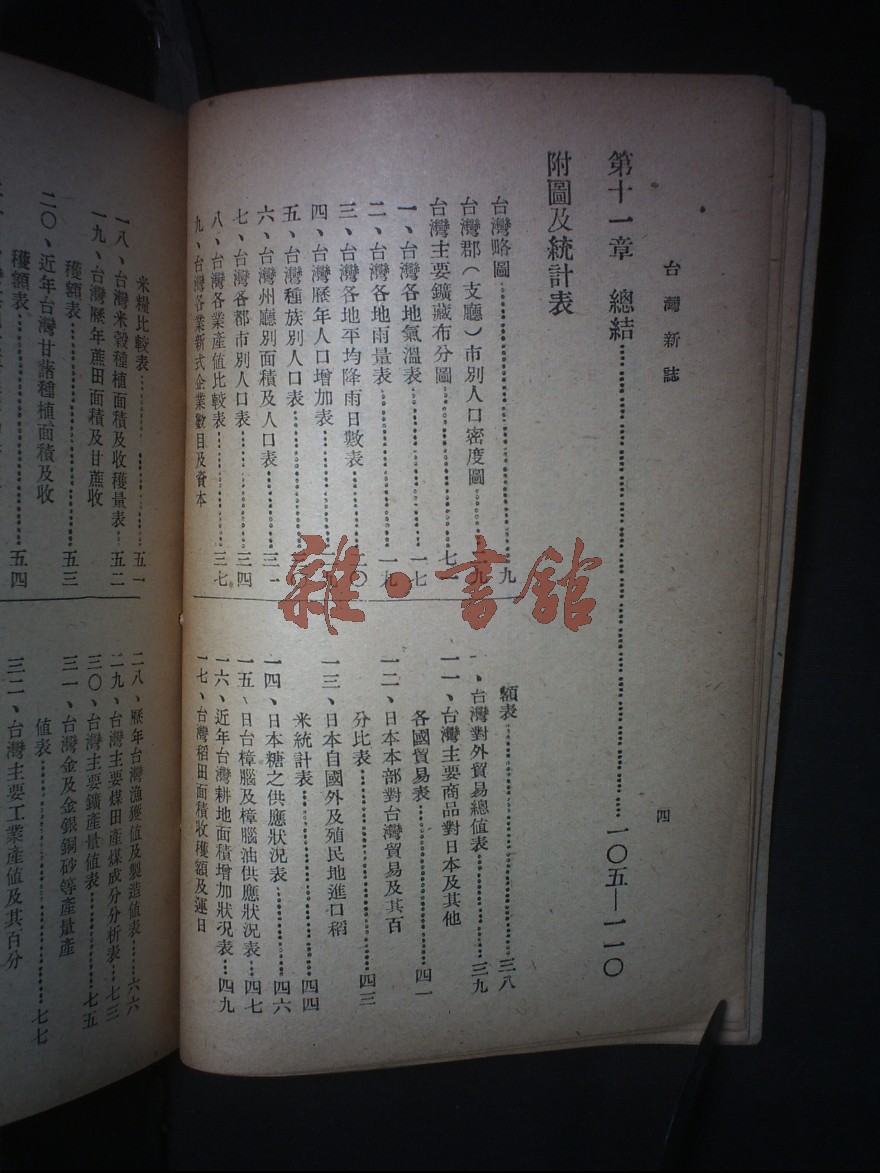 台灣新誌
四
第十一章　總結……一〇五—一一〇
附圖及統計表
台灣略圖……九
台灣郡（支廳）市別人口密度圖……九
台灣主要鑛藏布分圖……七一
一、台灣各地氣溫表……一七
二、台灣各地雨量表……一九
三、台灣各地平均降雨日數表……二〇
四、台灣歷年人口增加表
五、台灣種族別人口表
六、台灣州廳別面積及人口表……三一
七、台灣各都市別人口表……三四
八、台灣各業產值比較表……三七
九、台灣各業新式企業數目及資本
額表……三八
、台灣對外貿易總值表……三九
一一、台灣主要商品對日本及其他
各國貿易表……四一
一二、日本本部對台灣貿易及其百
分比表……四三
一三、日本自國外及殖民地進口稻
米統計表……四四
一四、日本糖之供應狀況表……四六
一五、日台樟腦及樟腦油供應狀況表…四七
一六、近年台灣耕地面積增加狀況表…四九
一七、台灣稻田面積收穫額及運日
米糧比較表……五一
一八、台灣米穀種植面積及收穫量表…五二
一九、台灣歷年蔗田面積及甘蔗收
穫額表……五三
二〇、近年台灣甘藷種植面積及收
穫額表……五四
二八、歷年台灣漁獲值及製造值表…六六
二九、台灣主要煤田產煤成分分析表…七三
三〇、台灣主要鑛產量值表……七五
三一、台灣金及金銀銅砂等產量產
值表……七七
三二、台灣主要工業產值及其百分
雜·書館